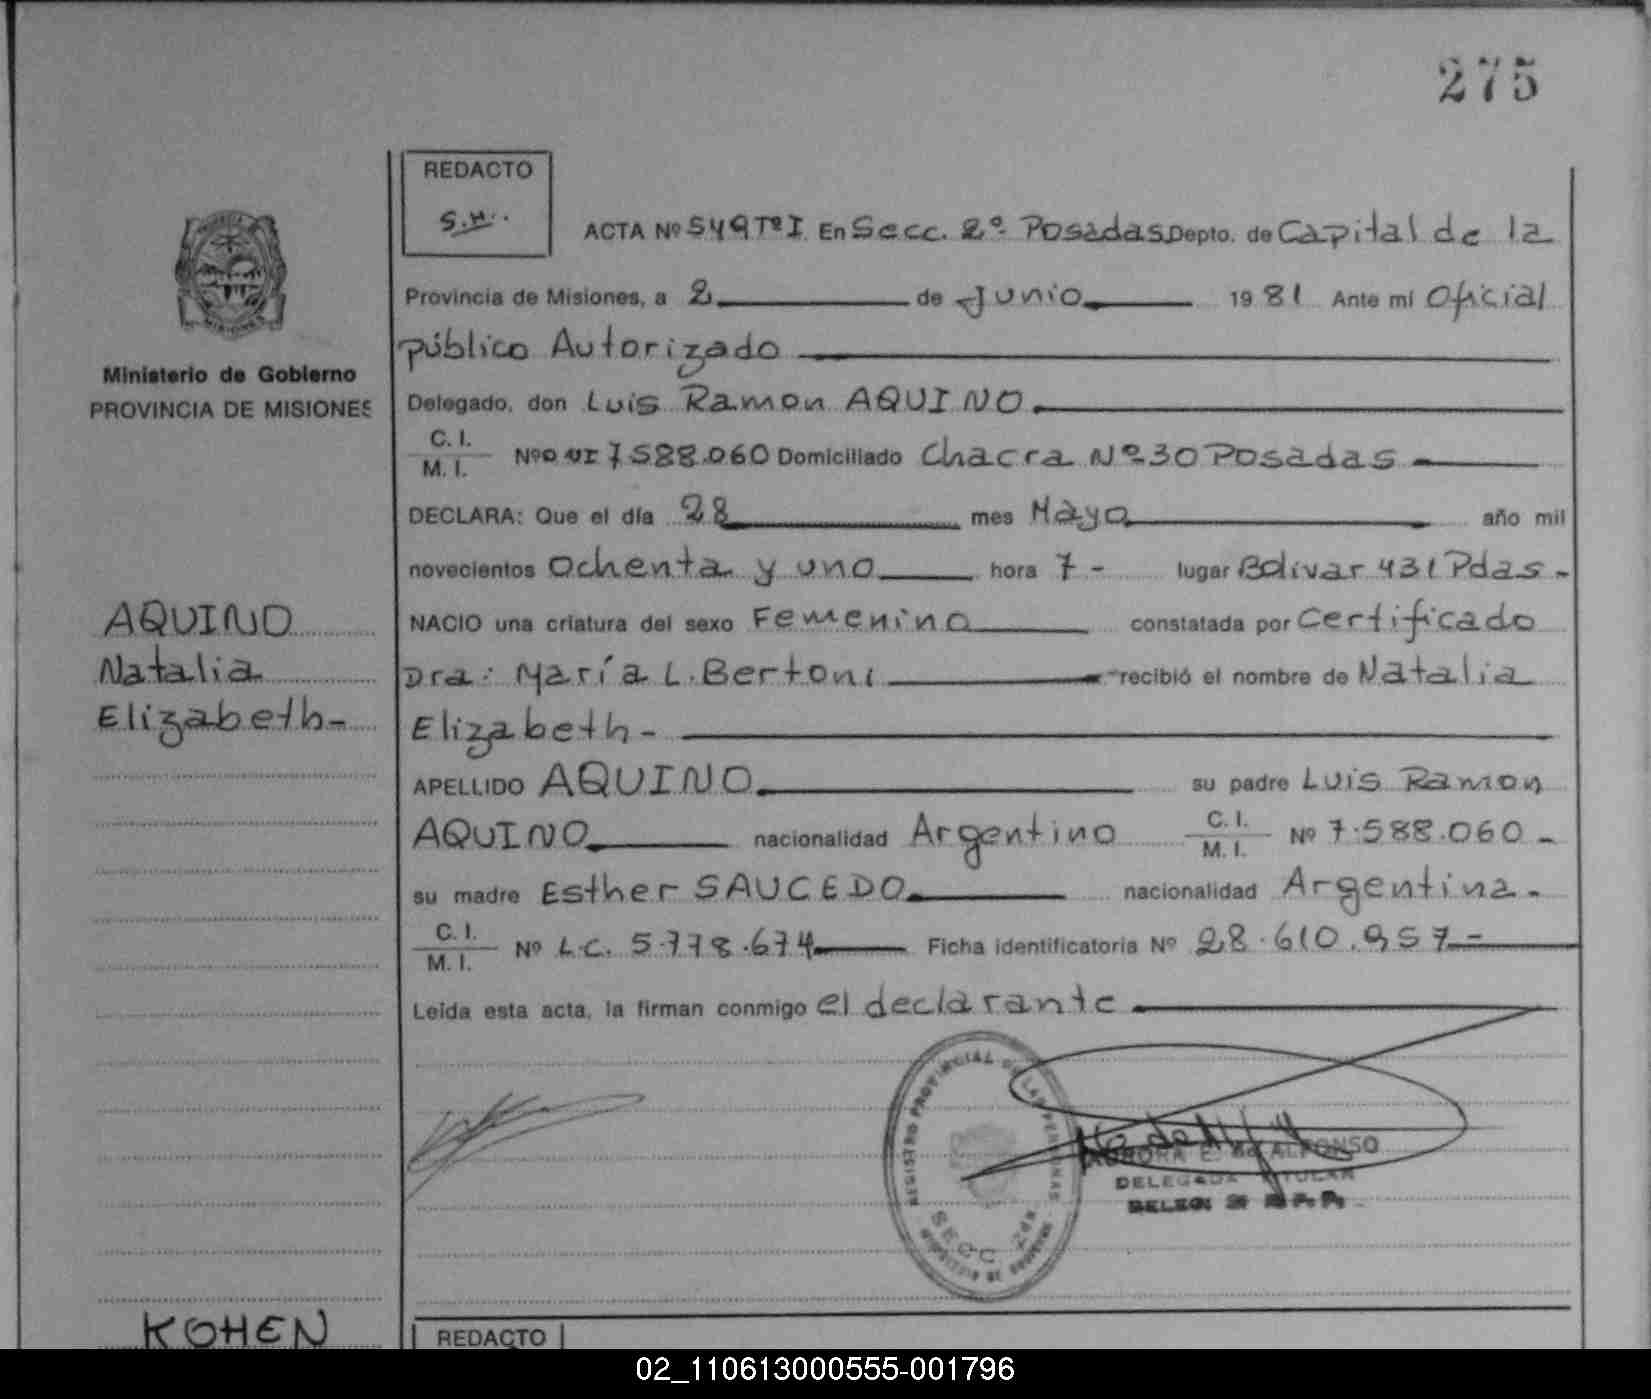 275
REDACTO
S.H..
ACTA Nº 549 Tº I En Secc. 2º Posadas Depto. de Capital de la
Provincia de Misiones, a 2 de Junio 19 81 Ante mí Oficial
público Autorizado
Ministerio de Gobierno
PROVINCIA DE MISIONES
Delegado, don Luis Ramon AQUINO
C. I.
M. I. Nº 7588.060 Domiciliado Chacra Nº 30 Posadas
DECLARA: Que el día 28 mes Mayo año mil
novecientos Ochenta y uno hora 7 - lugar Bolivar 431 Pdas -
AQUINO
Natalia
Elizabeth-
NACIO una criatura del sexo Femenino constatada por Certificado
Dra: María L. Bertoni recibió el nombre de Natalia
Elizabeth -
APELLIDO AQUINO su padre Luis Ramon
AQUINO nacionalidad Argentino C. I. M. I. Nº 7.588.060 -
su madre Esther SAUCEDO nacionalidad Argentina -
C. I.
M. I. Nº L.C. 5.778.674 Ficha identificatoria Nº 28.610.957 -
Leída esta acta, la firman conmigo el declarante
REGISTRO PROVINCIAL DE LAS PERSONAS
SECC. 2da
MINISTERIO DE GOBIERNO
AURORA E. de ALFONSO
DELEGADA TITULAR
KOHEN
REDACTO
02_110613000555-001796